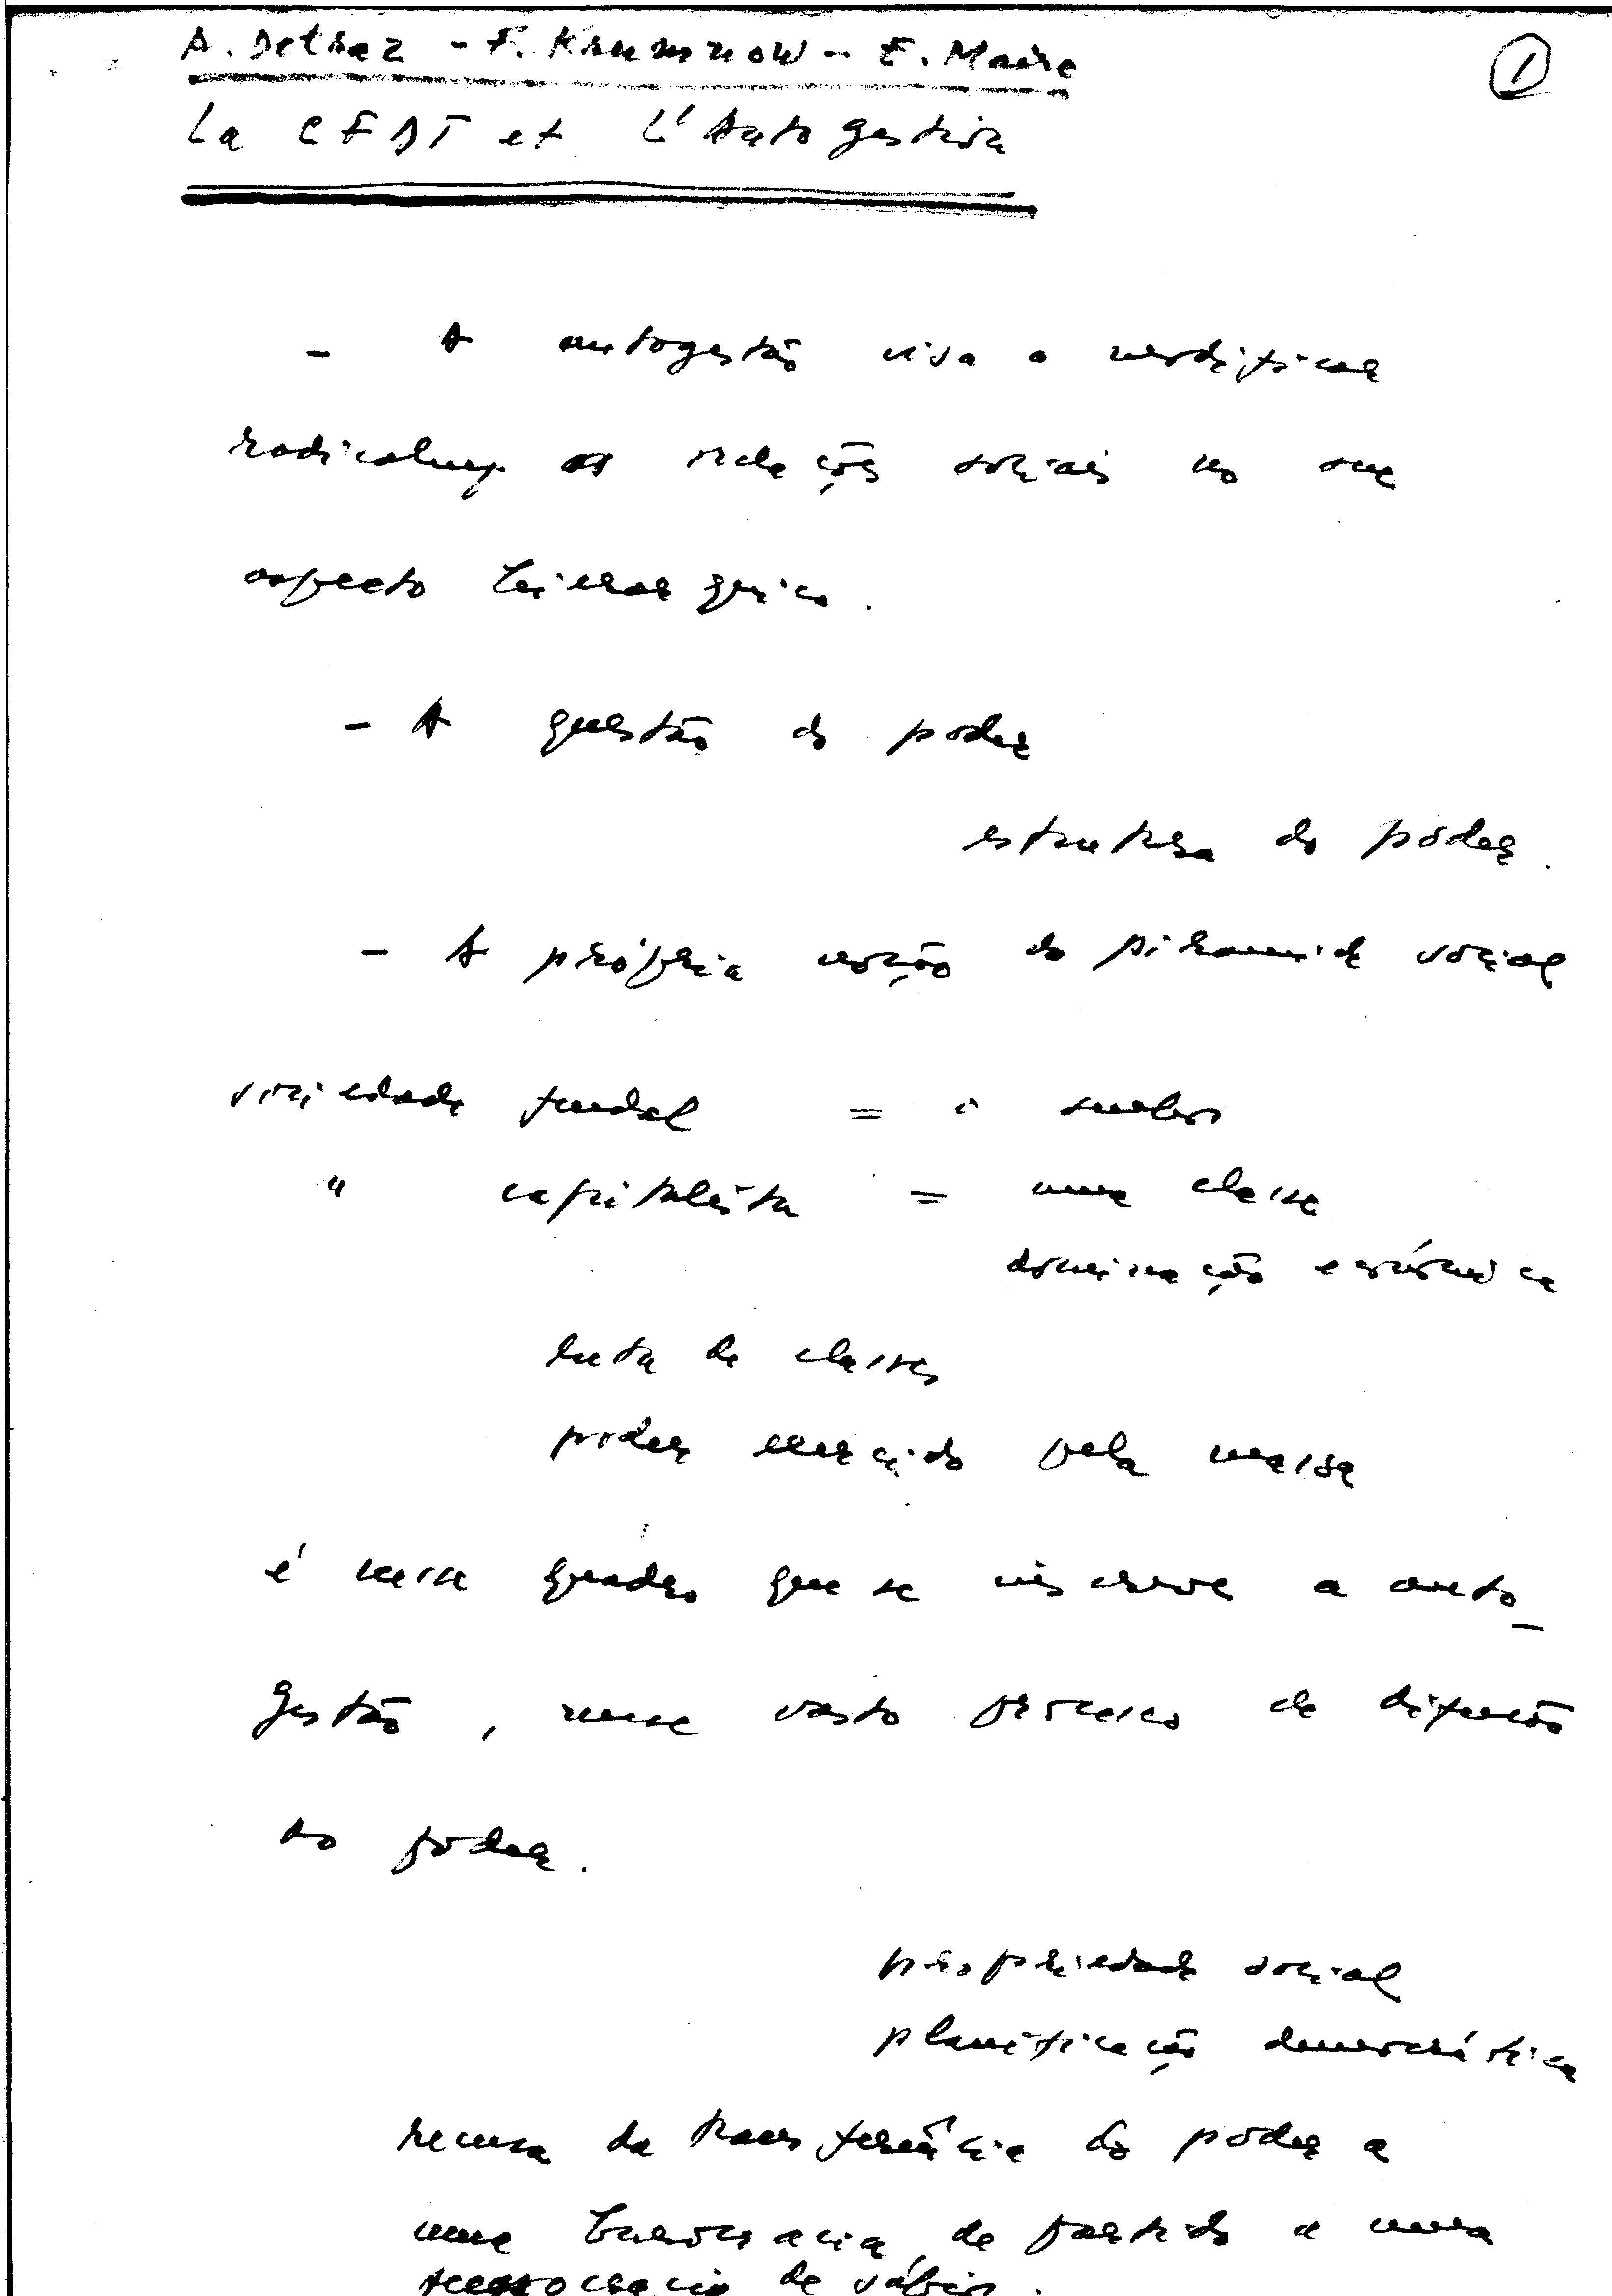 A. Detraz - F. Krumnow - E. Maire
①
La CFDT et L'Autogestion
- A autogestão visa a modificar
radicalmy. as relações sociais no seu
aspecto hierarquico.
- A questão do poder
estrutura do poder.
- A própria noção da piramide social
sociedade feudal = o senhor
" capitalista = uma classe
dominação económica
luta de classes
poder exercido pela massa
é nesse quadro que se inscreve a auto_
gestão, num vasto processo de difusão
do poder.
propriedade social
planificação democrática
recusa da transferência do poder a
uma burocracia de partido a uma
tecnocracia de sábios.